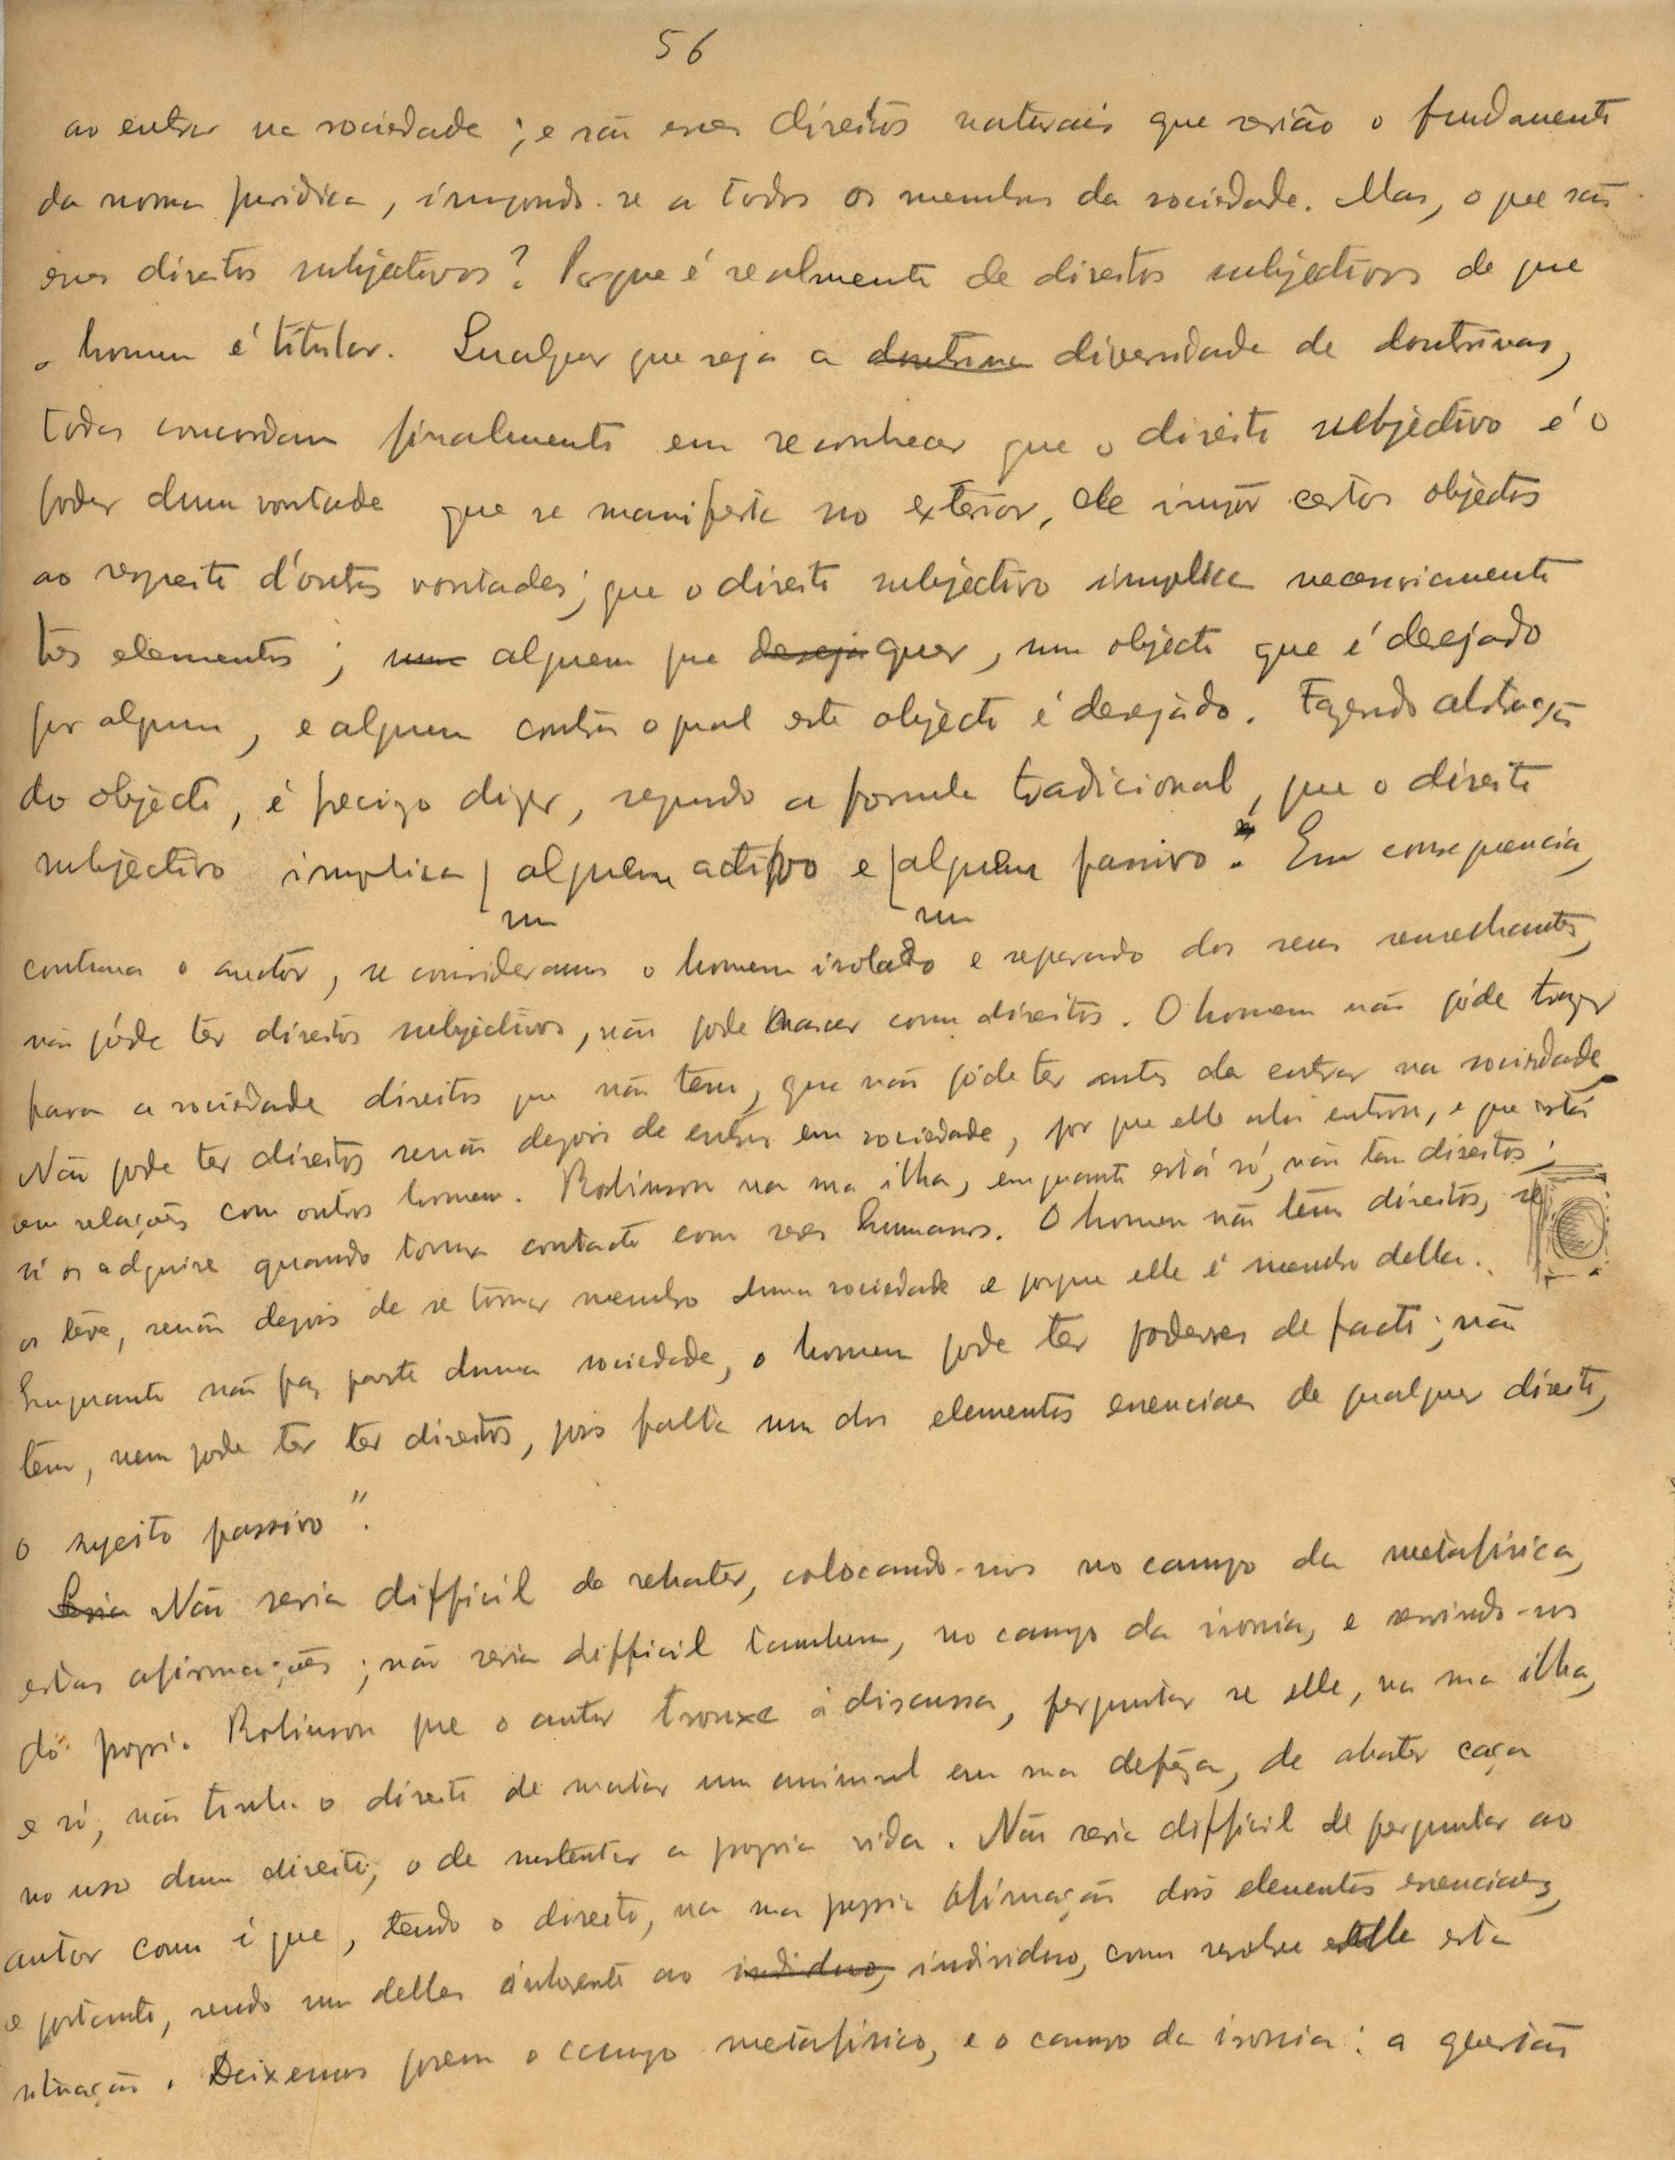 56
ao entrar na sociedade; e são esses direitos naturais que serião o fundamento
da norma juridica, impondo-se a todos os membros da sociedade. Mas, o que são
esses direitos subjectivos? Porque é realmente de direitos subjectivos de que
o homem é titular. Qualquer que seja a doutrina diversidade de doutrinas,
todas concordam finalmente em reconhecer que o direito subjectivo é o
poder duma vontade que se manifesta no exterior, de impôr certos objectos
ao respeito d'outras vontades; que o direito subjectivo implica necessariamente
tres elementos; um alguem que deseja quer, um objecto que é desejado
por alguem, e alguem contra o qual este objecto é desejado. Fazendo abstração
do objecto, é precizo dizer, segundo a formula tradicional, que o direito
subjectivo implica alguem activo e alguem passivo. Em consequencia,
um um
continua o auctor, se consideramos o homem isolado e separado dos seus semelhantes,
não póde ter direitos subjectivos, não pode nascer com direitos. O homem não póde trazer
para a sociedade direitos que não tem, que não póde ter antes de entrar na sociedade.
Não pode ter direitos senão depois de entrar em sociedade, por que elle ahi entrou, e que está
em relações com outros homens. Robinson na sua ilha, emquanto está só, não tem direitos;
só os adquire quando toma contacto com seres humanos. O homem não tem direitos, se
os teve, senão depois de se tornar membro duma sociedade e porque elle é membro della.
Emquanto não faz parte duma sociedade, o homem pode ter poderes de facto; não
tem, nem pode ter ter direitos, pois falta um dos elementos essenciaes de qualquer direito,
o sujeito passivo".
Seria Não seria difficil de rebater, colocando-nos no campo da metafisica,
estas afirmações; não seria difficil tambem, no campo da ironia, e servindo-nos
do proprio Robinson que o autor trouxe á discussa, perguntar se elle, na sua ilha,
e só, não tinha o direito de matar um animal em sua defeza, de abater caça
no uso dum direito, o de sustentar a propria vida. Não seria difficil de perguntar ao
autor como é que, tendo o direito, na sua propria afirmação dois elementos essenciaes,
e portanto, sendo um delles inherente ao individuo, individuo, como resolve elle esta
situação. Deixemos porem o campo metafisico, e o campo da ironia: a questão